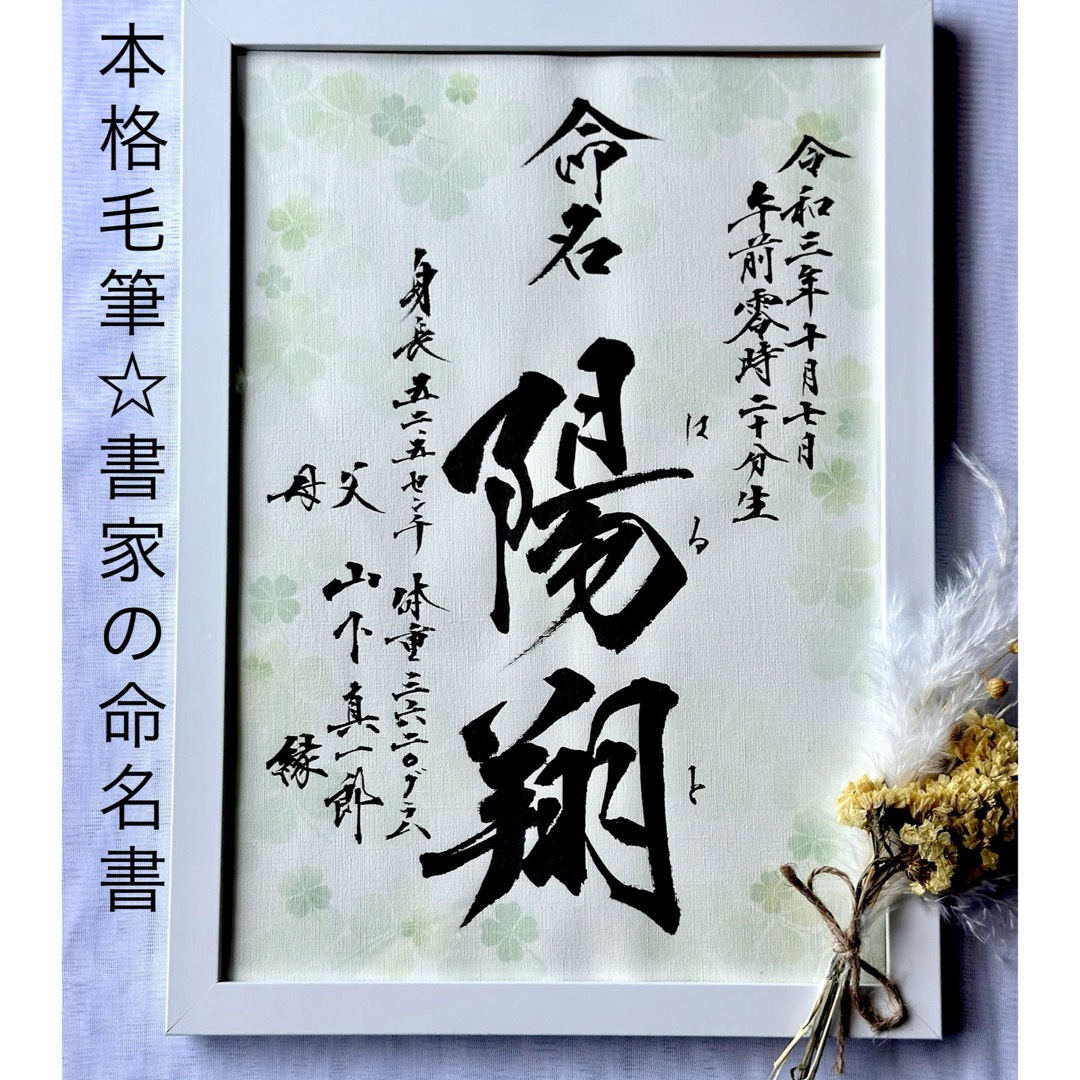 本格毛筆☆書家の命名書
令和三年十月七日
午前零時二十分生
命名
陽翔
はると
身長 五二、五センチ 体重 三六二〇グラム
父 山下 真一郎
母 縁